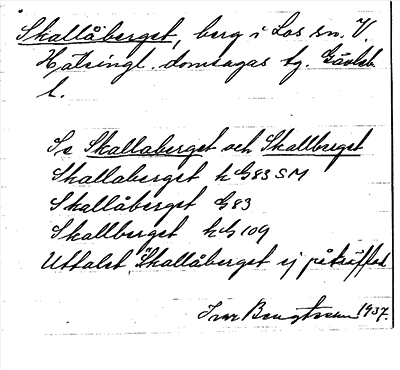 Skallåberget, berg i Los sn. V.
Hälsingl. domsagas tg. Gävleb.
l.
Se Skallaberget och Skallberget
Skallaberget kG83 SM
Skallåberget G83
Skallberget kG 109
Uttalet "Skallåberget ej påträffat
Ivar Bengtsson 1937.